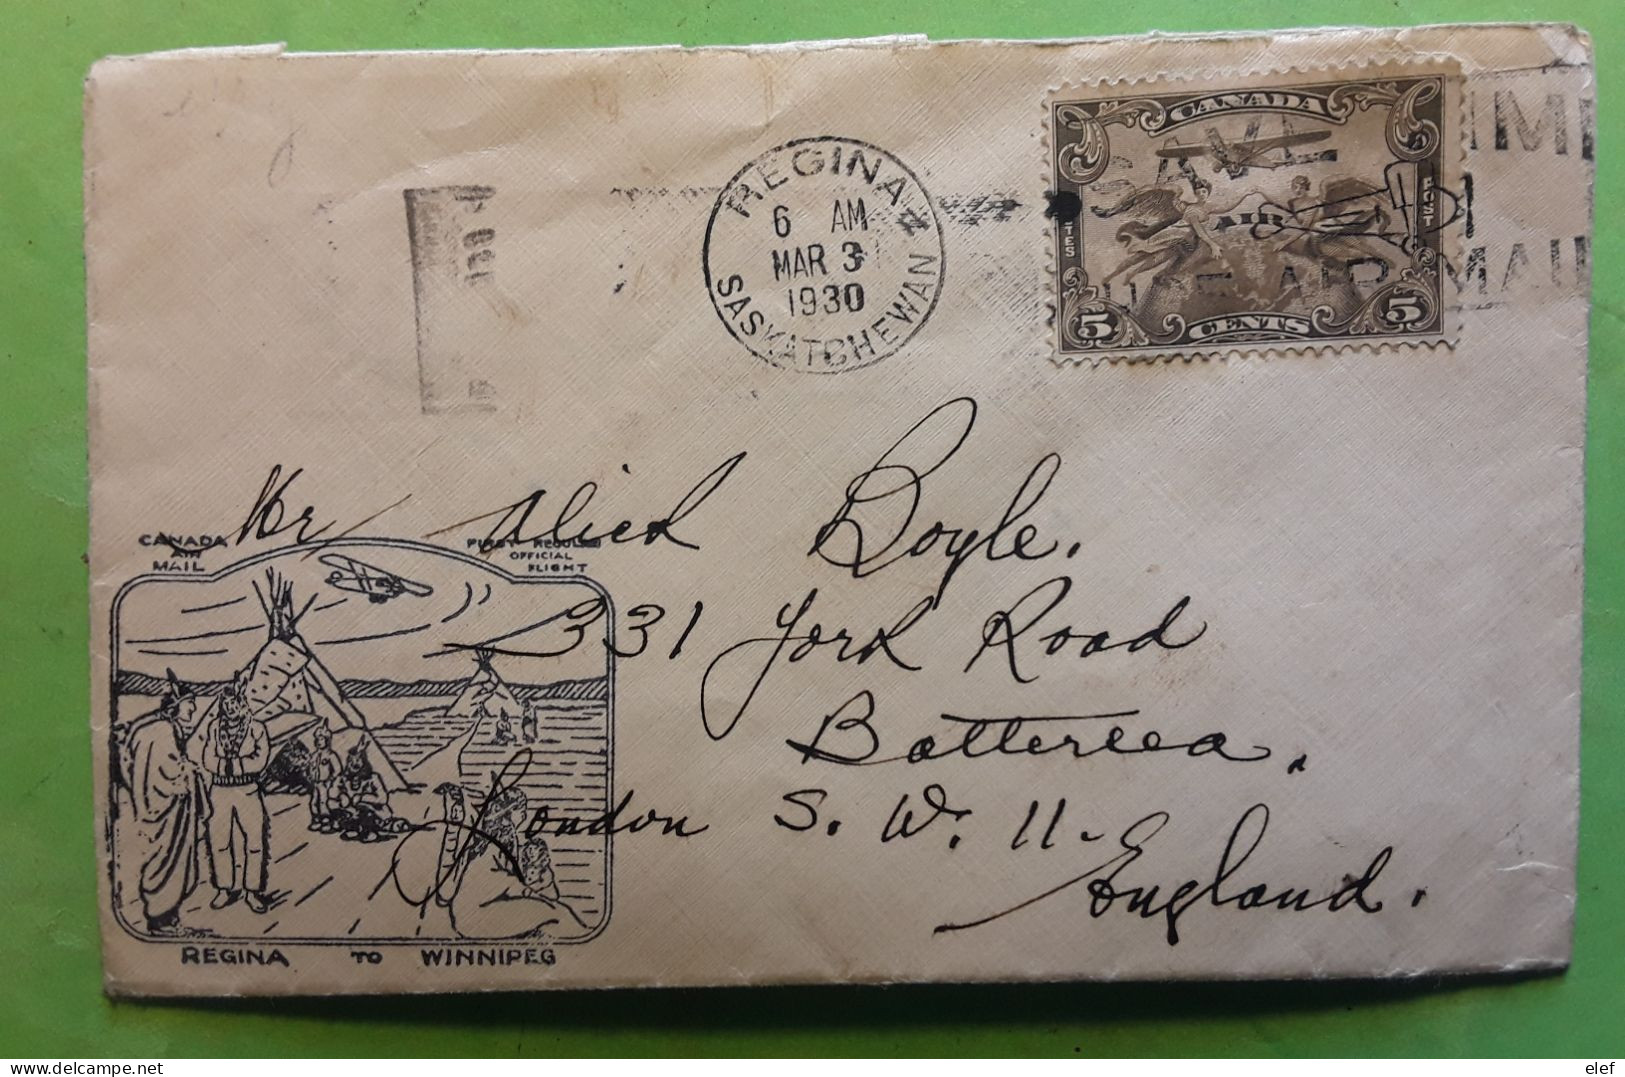 REGINA
SASKATCHEWAN
6 AM
MAR 3
1930
CANADA
AIR
POSTES
POST
5 CENTS 5
SAVE TIME
USE AIR MAIL
Mr Alick Boyle.
331 York Road
Battersea.
London S. W. 11.
England.
CANADA
AIR
MAIL
FIRST REGULAR
OFFICIAL
FLIGHT
REGINA TO WINNIPEG
elef